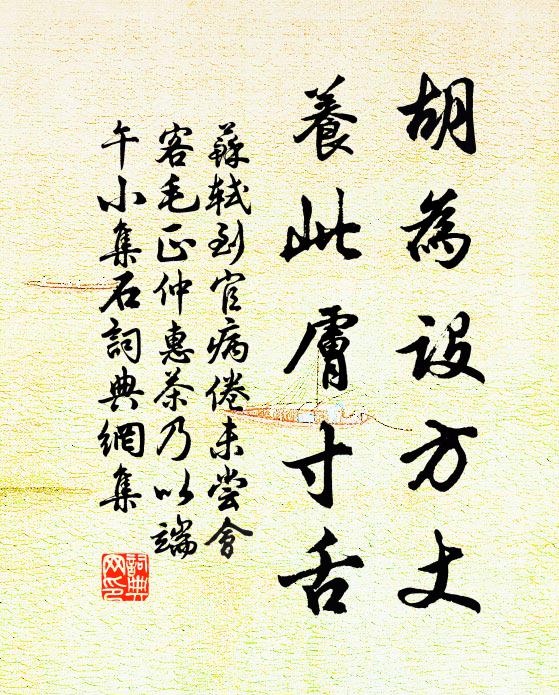 胡為設方丈
養此膚寸舌
蘇軾到官病倦未嘗會
客毛正仲惠茶乃以端
午小集石詞典網集
詞典
网印